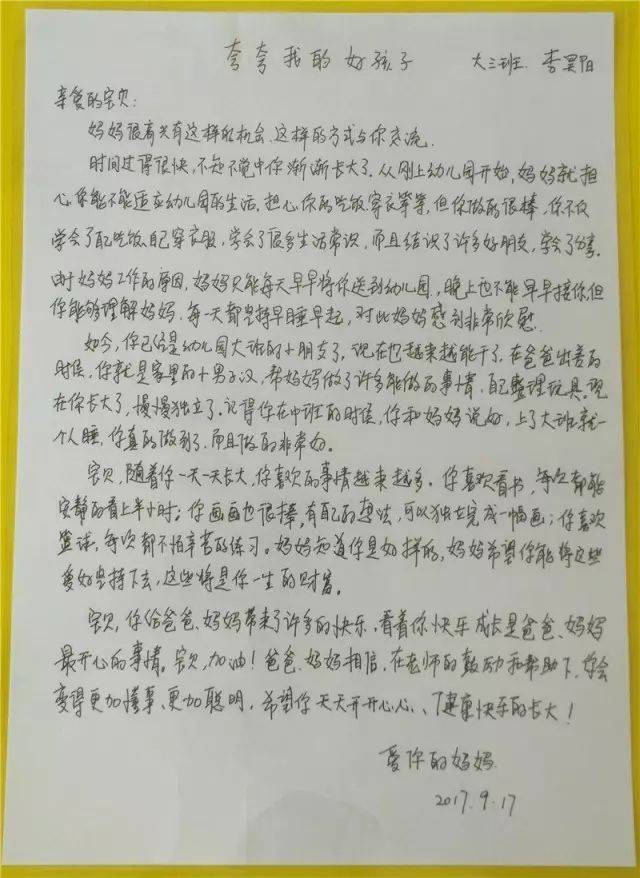 夸夸我的好孩子 大三班 李昊阳
亲爱的宝贝:
妈妈很高兴有这样的机会、这样的方式与你交流。
时间过得很快,不知不觉中你渐渐长大了。从刚上幼儿园开始,妈妈就担
心你能不能适应幼儿园的生活,担心你的吃饭、穿衣等等,但你做的很棒,你不仅
学会了自己吃饭、自己穿衣服,学会了很多生活常识,而且结识了许多好朋友,学会了分享。
由于妈妈工作的原因,妈妈只能每天早早将你送到幼儿园,晚上也不能早早接你,但
你能够理解妈妈,每一天都坚持早睡早起,对此妈妈感到非常欣慰。
如今,你已经是幼儿园大班的小朋友了,现在也越来越能干了。在爸爸出差的
时候,你就是家里的小男子汉,帮妈妈做了许多能做的事情,自己整理玩具。现
在你长大了,慢慢独立了。记得你在中班的时候,你和妈妈说好,上了大班就一
个人睡,你真的做到了,而且做的非常好。
宝贝,随着你一天一天长大,你喜欢的事情越来越多。你喜欢看书,每次都能
安静的看上半小时;你画画也很棒,有自己的想法,可以独立完成一幅画;你喜欢
篮球,每次都不怕辛苦的练习。妈妈知道你是好样的,妈妈希望你能将这些
爱好坚持下去,这些将是你一生的财富。
宝贝,你给爸爸、妈妈带来了许多的快乐,看着你快乐成长是爸爸、妈妈
最开心的事情。宝贝,加油!爸爸、妈妈相信,在老师的鼓励和帮助下,你会
变得更加懂事、更加聪明,希望你天天开开心心、健康快乐的长大!
爱你的妈妈
2017.9.17